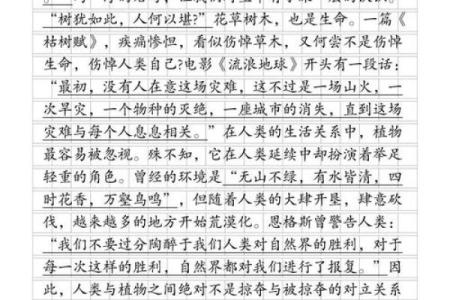 “树犹如此，人何以堪?”花草树木，也是生命。一篇《
枯树赋》，疾痛惨怛，看似伤悼草木，又何尝不是伤悼
生命，伤悼人类自己?电影《流浪地球》开头有一段话：
“最初，没有人在意这场灾难，这不过是一场山火，一
次旱灾，一个物种的灭绝，一座城市的消失，直到这场
灾难与每个人息息相关。”在人类的生活关系中，植物
最容易被忽视。殊不知，它在人类延续中却扮演着举足
轻重的角色。曾经的环境是“无山不绿，有水皆清，四
时花香，万壑鸟鸣”，但随着人类的大肆开垦，肆意砍
伐，越来越多的地方开始荒漠化。恩格斯曾警告人类：
“我们不要过分陶醉于我们人类对自然界的胜利，对于
每一次这样的胜利，自然界都对我们进行了报复。”因
此，人类与植物之间绝对不是掠夺与被掠夺的对立关系